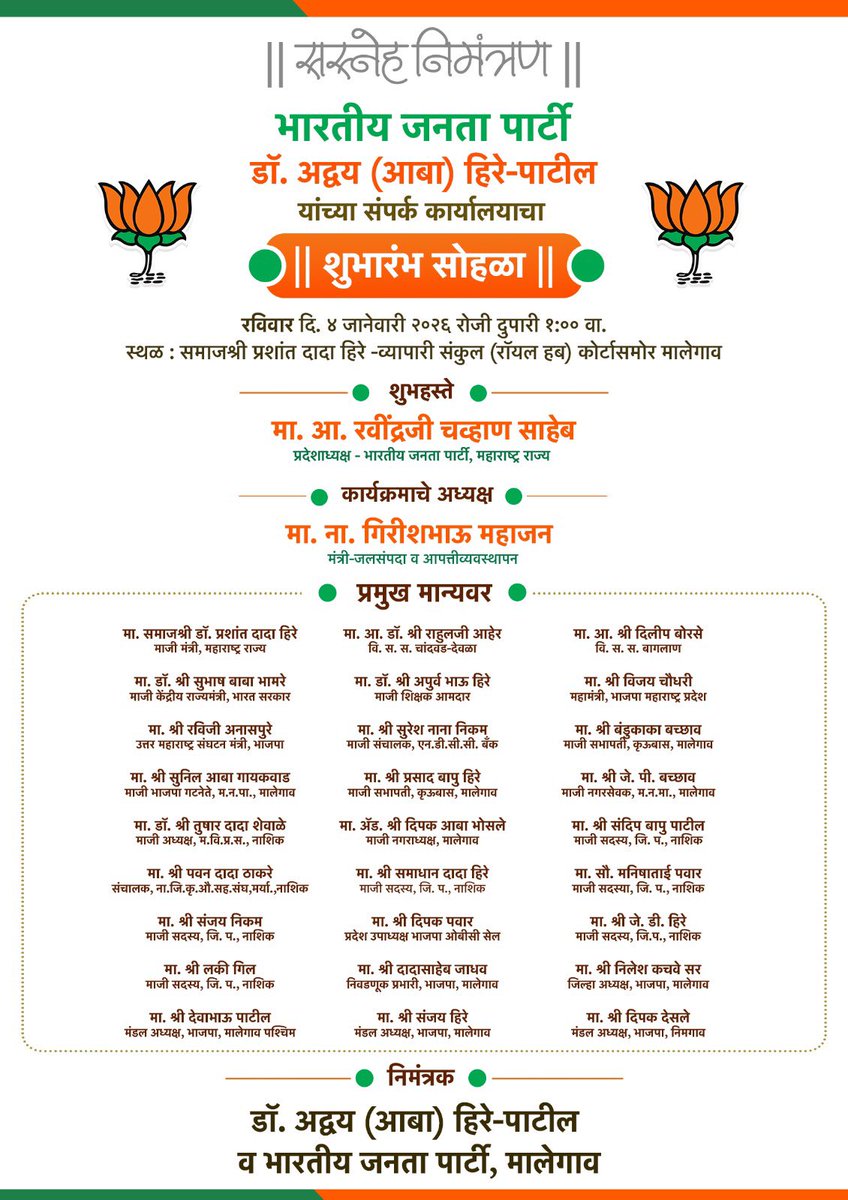 || सस्नेह निमंत्रण ||
भारतीय जनता पार्टी
डॉ. अद्वय (आबा) हिरे-पाटील
यांच्या संपर्क कार्यालयाचा
|| शुभारंभ सोहळा ||
रविवार दि. ४ जानेवारी २०२६ रोजी दुपारी १:०० वा.
स्थळ : समाजश्री प्रशांत दादा हिरे -व्यापारी संकुल (रॉयल हब) कोर्टासमोर मालेगाव
शुभहस्ते
मा. आ. रवींद्रजी चव्हाण साहेब
प्रदेशाध्यक्ष - भारतीय जनता पार्टी, महाराष्ट्र राज्य
कार्यक्रमाचे अध्यक्ष
मा. ना. गिरीशभाऊ महाजन
मंत्री-जलसंपदा व आपत्तीव्यवस्थापन
प्रमुख मान्यवर
मा. समाजश्री डॉ. प्रशांत दादा हिरे
माजी मंत्री, महाराष्ट्र राज्य
मा. आ. डॉ. श्री राहुलजी आहेर
वि. स. स. चांदवड-देवळा
मा. आ. श्री दिलीप बोरसे
वि. स. स. बागलाण
मा. डॉ. श्री सुभाष बाबा भामरे
माजी केंद्रीय राज्यमंत्री, भारत सरकार
मा. डॉ. श्री अपुर्व भाऊ हिरे
माजी शिक्षक आमदार
मा. श्री विजय चौधरी
महामंत्री, भाजपा महाराष्ट्र प्रदेश
मा. श्री रविजी अनासपुरे
उत्तर महाराष्ट्र संघटन मंत्री, भाजपा
मा. श्री सुरेश नाना निकम
माजी संचालक, एन.डी.सी.सी. बँक
मा. श्री बंडुकाका बच्छाव
माजी सभापती, कृऊबास, मालेगाव
मा. श्री सुनिल आबा गायकवाड
माजी भाजपा गटनेते, म.न.पा., मालेगाव
मा. श्री प्रसाद बापु हिरे
माजी सभापती, कृऊबास, मालेगाव
मा. श्री जे. पी. बच्छाव
माजी नगरसेवक, म.न.मा., मालेगाव
मा. डॉ. श्री तुषार दादा शेवाळे
माजी अध्यक्ष, म.वि.प्र.स., नाशिक
मा. ॲड. श्री दिपक आबा भोसले
माजी नगराध्यक्ष, मालेगाव
मा. श्री संदिप बापु पाटील
माजी सदस्य, जि. प., नाशिक
मा. श्री पवन दादा ठाकरे
संचालक, ना.जि.कृ.औ.सह.संघ,मर्या.,नाशिक
मा. श्री समाधान दादा हिरे
माजी सदस्य, जि. प., नाशिक
मा. सौ. मनिषाताई पवार
माजी सदस्या, जि. प., नाशिक
मा. श्री संजय निकम
माजी सदस्य, जि. प., नाशिक
मा. श्री दिपक पवार
प्रदेश उपाध्यक्ष भाजपा ओबीसी सेल
मा. श्री जे. डी. हिरे
माजी सदस्य, जि.प., नाशिक
मा. श्री लकी गिल
माजी सदस्य, जि. प., नाशिक
मा. श्री दादासाहेब जाधव
निवडणूक प्रभारी, भाजपा, मालेगाव
मा. श्री निलेश कचवे सर
जिल्हा अध्यक्ष, भाजपा, मालेगाव
मा. श्री देवाभाऊ पाटील
मंडल अध्यक्ष, भाजपा, मालेगाव पश्चिम
मा. श्री संजय हिरे
मंडल अध्यक्ष, भाजपा, मालेगाव
मा. श्री दिपक देसले
मंडल अध्यक्ष, भाजपा, निमगाव
निमंत्रक
डॉ. अद्वय (आबा) हिरे-पाटील
व भारतीय जनता पार्टी, मालेगाव